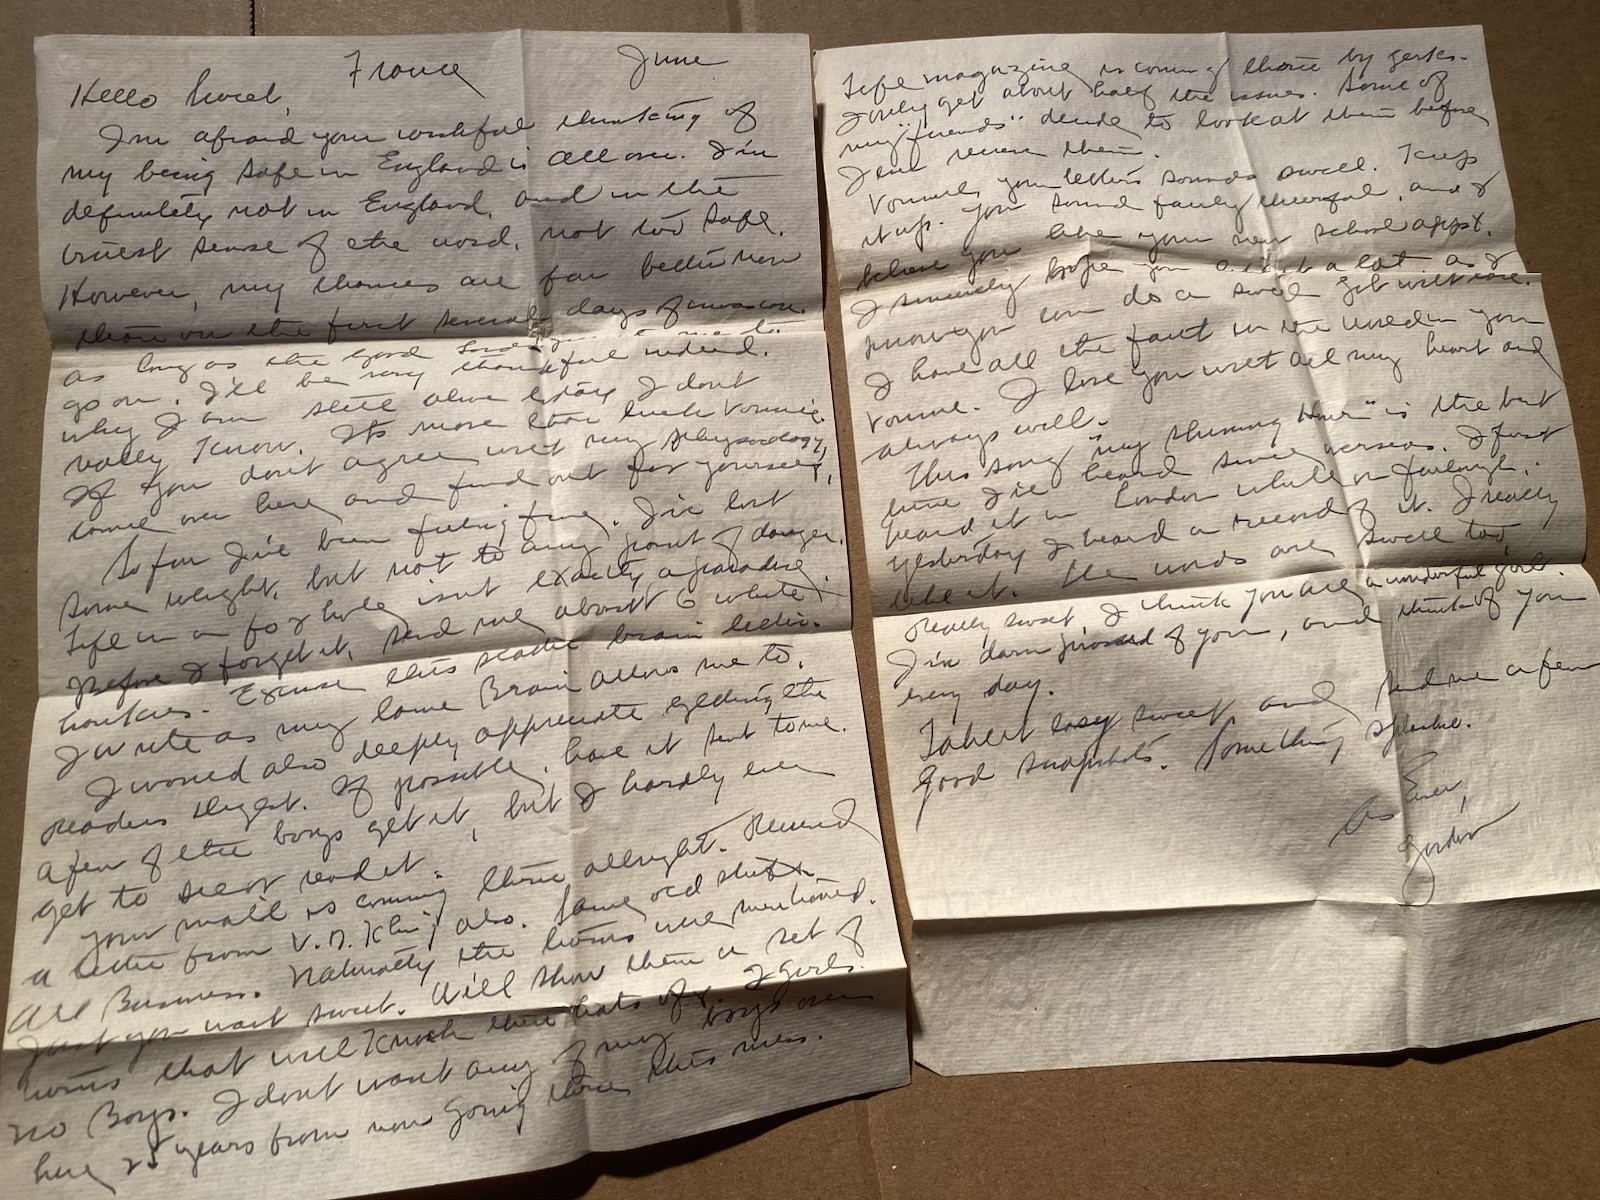 France June
Hello Sweet,
I'm afraid your wishful thinking of
my being safe in England is all over. I'm
definitely not in England, and in the
truest sense of the word, not too safe.
However, my chances are far better now
than on the first several days of invasion.
As long as the good Lord me to
go on, I'll be very thankful indeed.
Why I am still alive today I don't
really know. It's more than luck Vonnie.
If you don't agree with my
come over here and find out for yourself,
So far I've been feeling fine. I've lost
some weight, but not to any point of danger.
Life in a fox hole isn't exactly a paradise.
Before I forget it, send me about 6 white
hankies. Excuse this scatter brain letter.
I write as my lame Brain allows me to.
I would also deeply appreciate getting the
readers digest. If possible, have it sent to me.
A few of the boys get it, but I hardly ever
get to see or read it.
Your mail is coming thru allright. Received
a letter from V.D. also. Same old
All Business. Naturally the twins were mentioned.
Just you wait sweet. Will show them a set of
twins that will knock their hats off. 2 girls.
no Boys. I don't want any of my boys over
here 25 years from now going thru this mess.
Life magazine is coming thru by jerks.
I only get about half the issues. Some of
my "friends" decide to look at them before
I even receive them.
Vonnie, your letters sounds swell. Keep
it up. You sound fairly cheerful, and I
believe you like your new school appt.
I sincerely hope you a lot as I
know you can do a swell job with ease.
I have all the faith in the world in you
Vonnie. I love you with all my heart and
always will.
This song "my shining Hour" is the best
tune I've heard since overseas. I first
heard it in London while on furlough.
Yesterday I heard a record of it. I really
like it. The words are swell too,
Really sweet, I think you are a wonderful girl.
I'm darn proud of you, and think of you
every day.
Take it easy sweet and send me a few
good snapshots. Something special.
As Ever,
Gordon